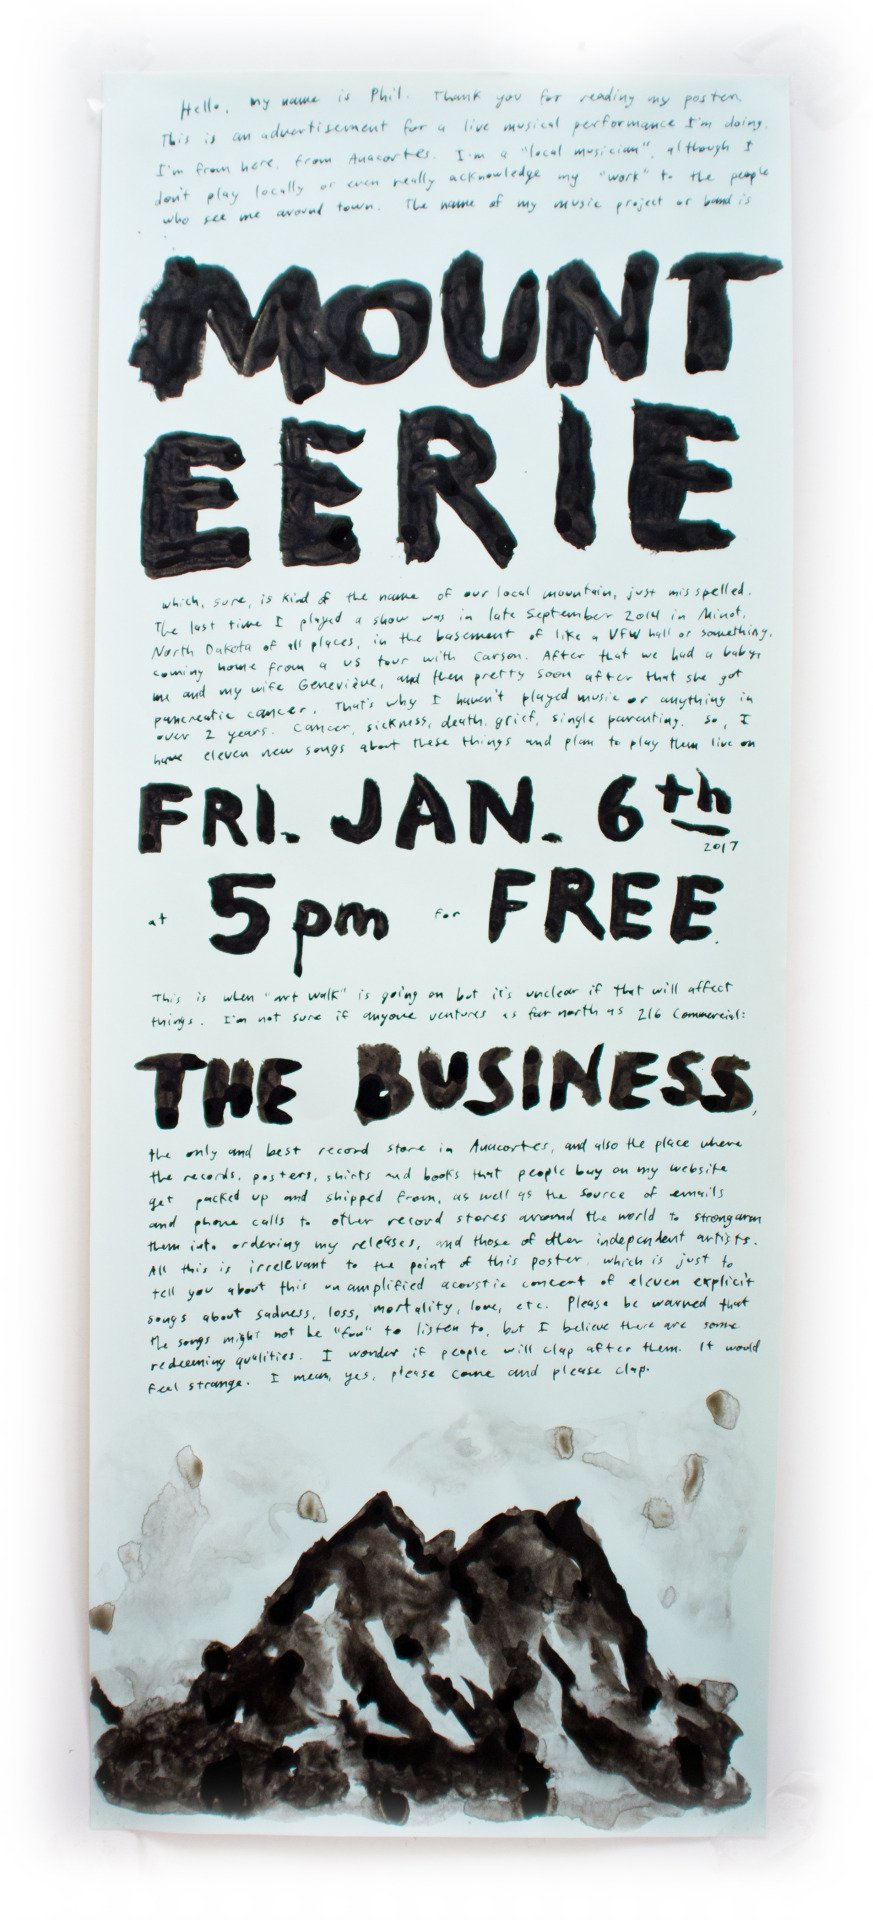 Hello, my name is Phil. Thank you for reading my poster.
This is an advertisement for a live musical performance I'm doing.
I'm from here, from Anacortes. I'm a "local musician", although I
don't play locally or even really acknowledge my "work" to the people
who see me around town. The name of my music project or band is
MOUNT
EERIE
which, sure, is kind of the name of our local mountain, just misspelled.
The last time I played a show was in late September 2014 in Minot,
North Dakota of all places, in the basement of like a VFW hall or something,
coming home from a US tour with Carson. After that we had a baby,
me and my wife Geneviève, and then pretty soon after that she got
pancreatic cancer. That's why I haven't played music or anything in
over 2 years. Cancer, sickness, death, grief, single parenting. So, I
have eleven new songs about these things and plan to play them live on
FRI. JAN. 6th
2017
at 5pm for FREE.
This is when "art walk" is going on but it's unclear if that will affect
things. I'm not sure if anyone ventures as far north as 216 Commercial:
THE BUSINESS,
the only and best record store in Anacortes, and also the place where
the records, posters, shirts and books that people buy on my website
get packed up and shipped from, as well as the source of emails
and phone calls to other record stores around the world to strongarm
them into ordering my releases, and those of other independent artists.
All this is irrelevant to the point of this poster, which is just to
tell you about this unamplified acoustic concert of eleven explicit
songs about sadness, loss, mortality, love, etc. Please be warned that
the songs might not be "fun" to listen to, but I believe there are some
redeeming qualities. I wonder if people will clap after them. It would
feel strange. I mean, yes, please come and please clap.